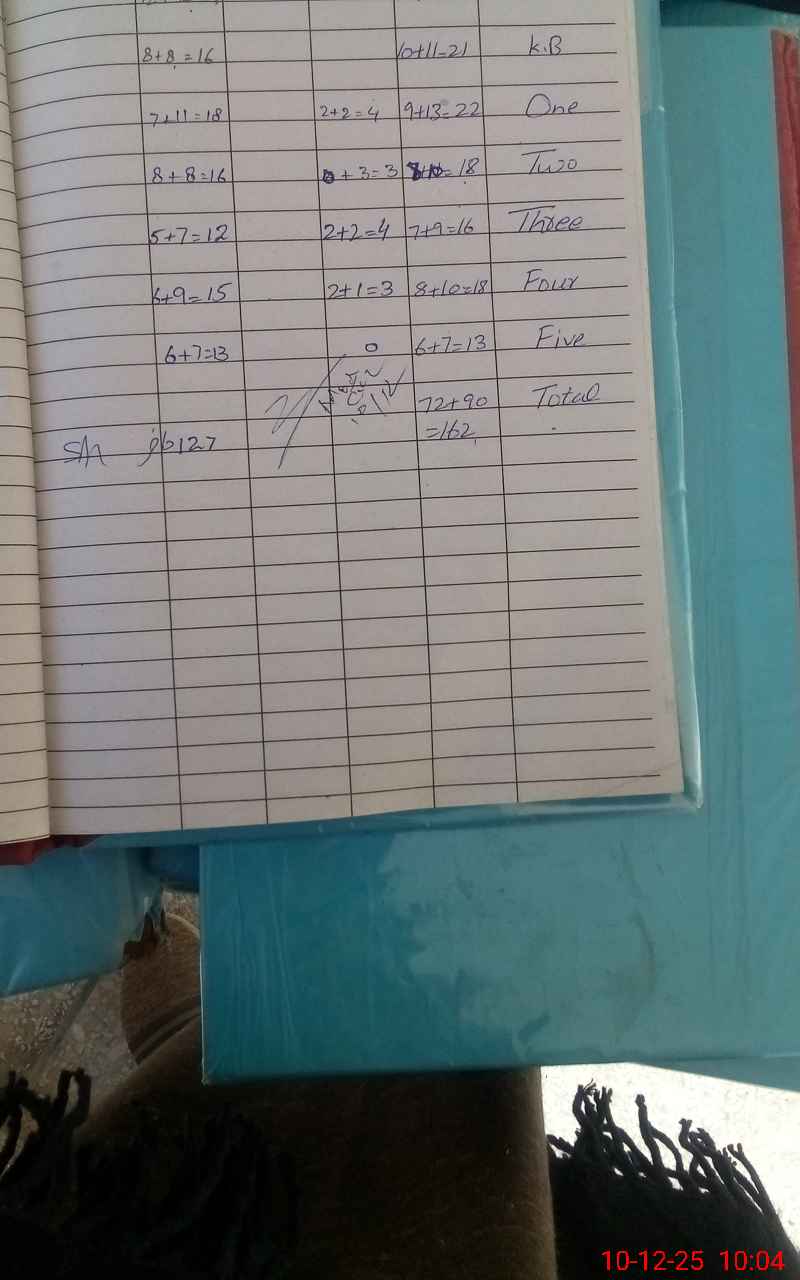 8+8=16 10+11=21 K.B
7+11=18 2+2=4 9+13=22 One
8+8=16 0+3=3 =18 Two
5+7=12 2+2=4 7+9=16 Three
6+9=15 2+1=3 8+10=18 Four
6+7=13 0 6+7=13 Five
72+90 Total
=162
127
10-12-25 10:04